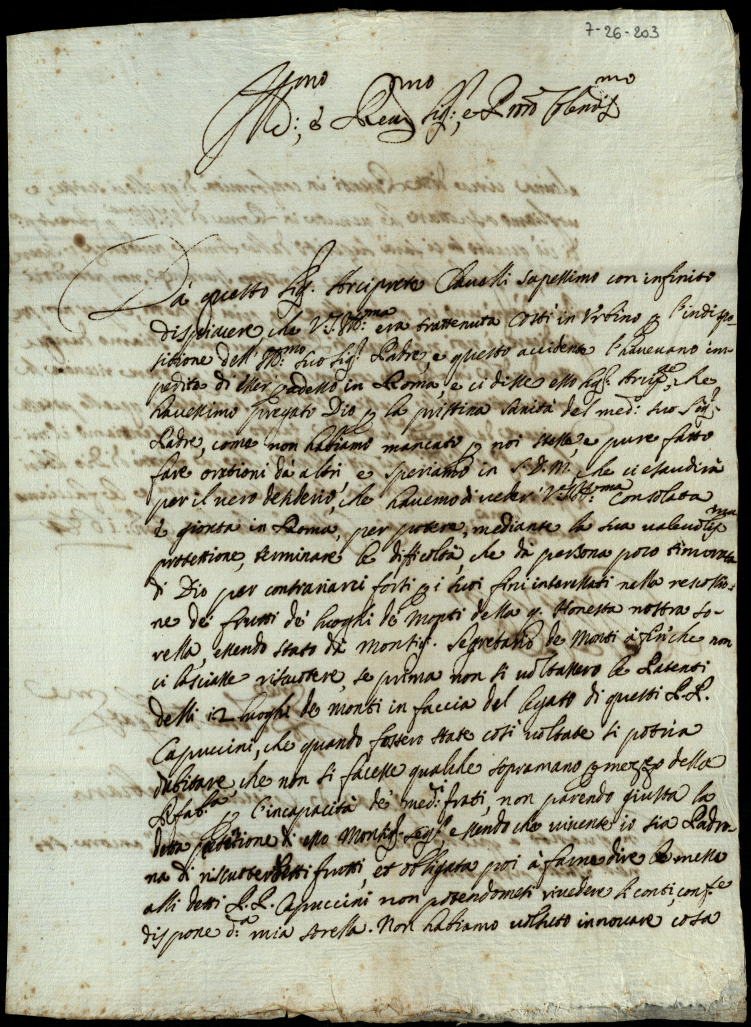 7-26-203
Ill:mo, e Rev:mo Sig:r, e P.rone Colend:mo
Da questo Sig:r Arciprete Clavelli sapessimo con infinito
dispiacere che V.S. Ill:ma era trattenuta costì in Urbino p l'indispo-
sitione dell'Ill:mo suo Sig:r Padre, e questo accidente l'havevano im-
pedita di esser adesso in Roma, e ci disse esso Sig:r Arcip:te che
havessimo pregato Dio p la pristina sanità del med:o suo Sig:r
Padre, come non habiamo mancato p noi stesse, e pure fatto
fare orationi da altri, e speriamo in S.D.M. che ci esaudirà
per il vero desiderio, che havemo di veder V.S. Ill:ma consolata
e gionta in Roma, per potere, mediante la sua valevoliss:a
protettione, terminare le difficoltà, che da persona poco timorata
di Dio per contrariarci forti p i suoi fini interessati nella rescossio-
ne de frutti de luoghi de Monti della q. Honesta nostra so-
rella, essendo stato da Monsig:r Segretario de Monti à fin che non
ci lasciasse riscotere, se prima non si voltassero le Patenti
delli 12 luoghi de monti in faccia del legato di questi P.P.
Capuccini, che quando fossero state così voltate si potria
dubitare, che non si facesse qualche sopramano p mezzo della
R. fab:ca p l'incapacità de med:i frati, non parendo giusta la
detta petitione di esso Monsig:r Seg:rio essendo che vivente io sia Padro-
na di riscuoter detti frutti, et obligata poi à farne dire le messe
alli detti P.P. Capuccini non potendomeli rivedere li conti, conf:e
dispone d:a mia sorella. Non habiamo voluto innovare cosa